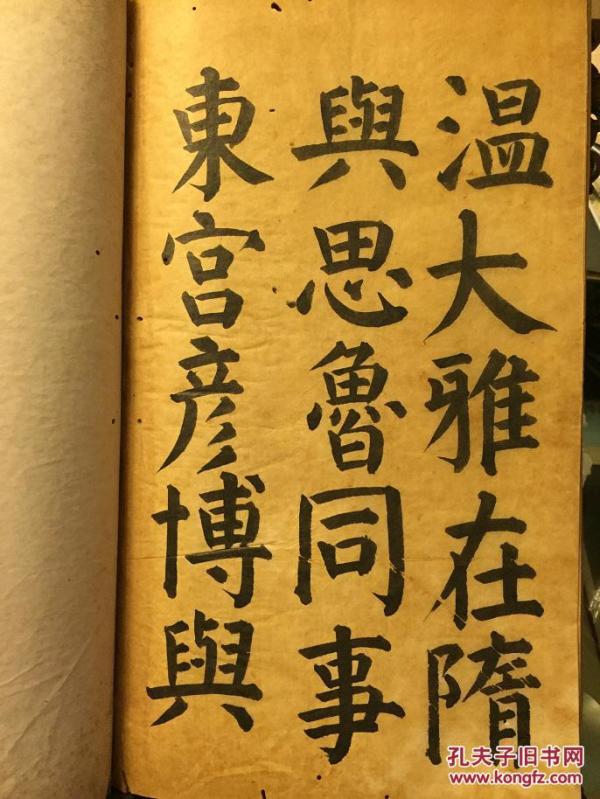 溫大雅在隋
與思魯同事
東宮彥博與
孔夫子旧书网
www.kongfz.com